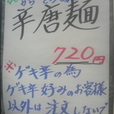 辛唐麺
720円
※ゲキ辛の為
ゲキ辛好みのお客様
以外は注文しないで